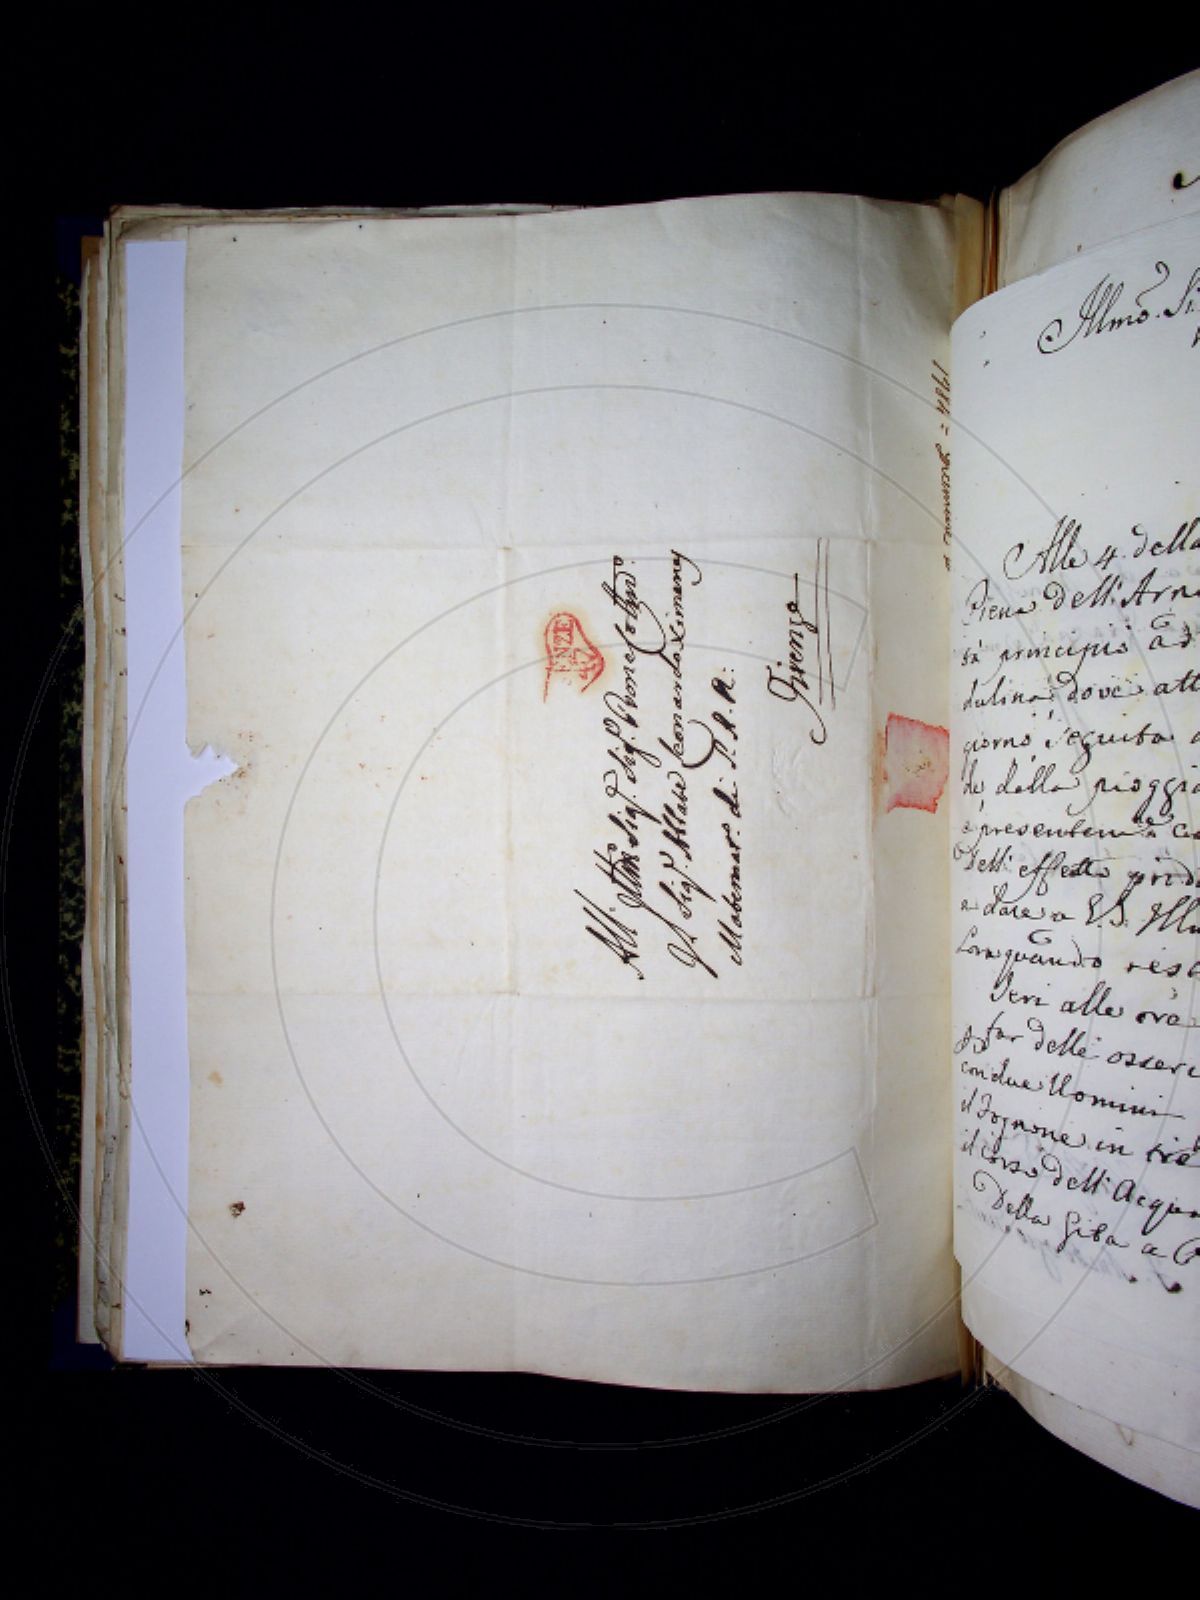 All' Illmo Sigr. Sigr. Prone Colmo.
Il Sigr. Abbate Leonardo Ximenes
Matematco. di S. A. R.
Firenze
ENZE
= 4861
Illmo. Si
Alle 4. della
Piena dell'Arno
principio ad
dulina dove att
giorno seguita a
de della pioggia
presentem
Dell'effetto prod
a dare a V.S. Illu
quando res
Ieri alle ore
far delle osserv
con due Uomini
il fognone in tre
il corso dell'Acqua
Della Giba a